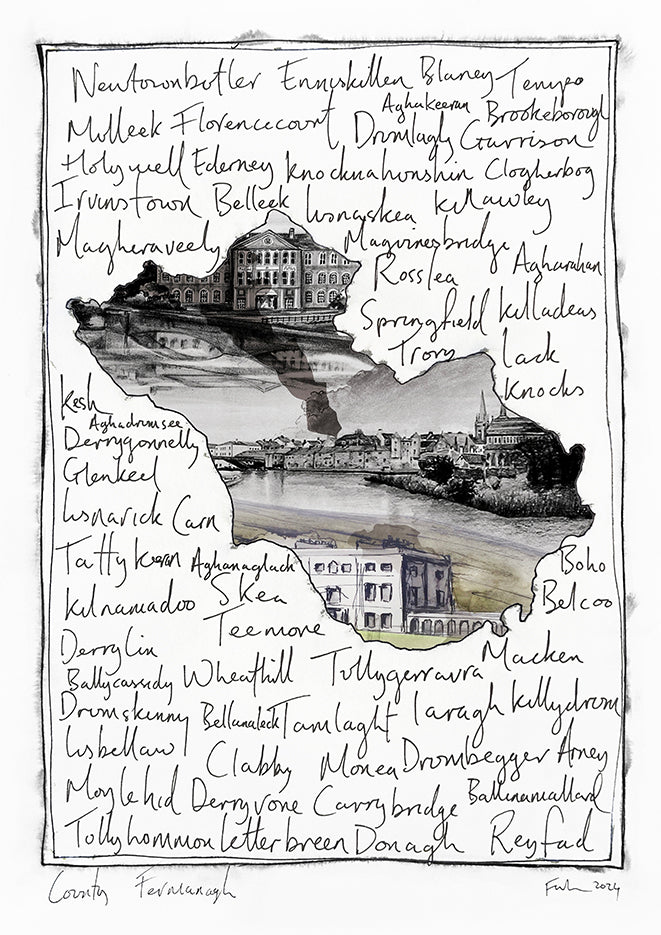 Newtownbutler Enniskillen Blaney Tempo
Mulleek Florencecourt Aghakeeran Brookeborough
Drumlaghy Garrison
Holywell Ederney Knocknahunshin Clogherbog
Irvinstown Belleek Lisnaskea Killawley
Magheraveely Maguinesbridge
Rosslea Agharahan
Springfield Killadeas
Trory Lack
Knocks
Kesh
Aghadrumsee
Derrygonnelly
Glenkeel
Lisnarick Carn
Tattykeeran Aghanaglack Boho
Kilnamadoo Skea Belcoo
Teemore
Derrylin Macken
Ballycassidy Wheathill Tullygerravra
Drumskinny Bellanaleck Tamlaght Laragh Killydrum
Lisbellaw Clabby Monea Drumbegger Arney
Moylehid Derryvone Carrybridge Ballinamallard
Tullyhommon Letterbreen Donagh Reyfad
County Fermanagh 2024